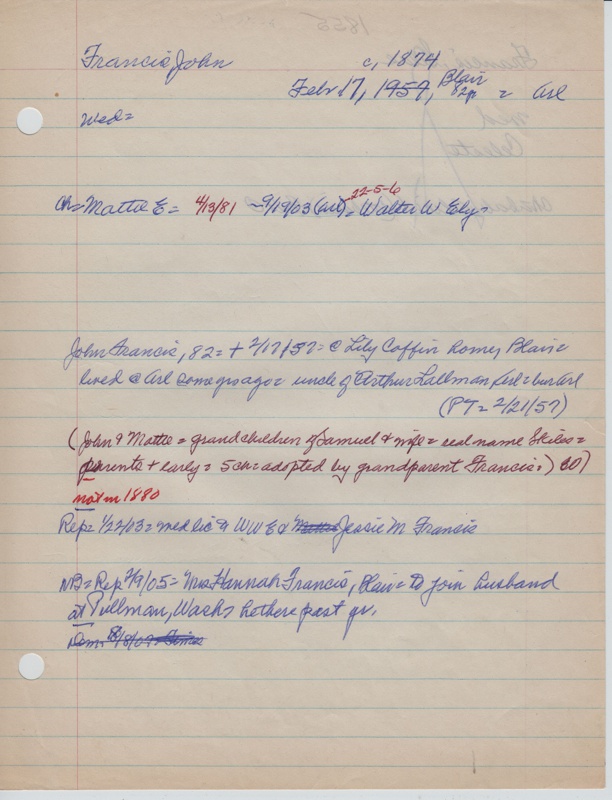 Francis, John c, 1874
Feb 17, 1957, Blair 82 yr = Arl
Wed =
Ch = Mattie E = 4/13/81 ~ 9/19/03 (Arl) = 22-5-6 Walter W Ely =
John Francis, 82 = + 2/17/57 = @ Lily Coffin Home, Blair =
lived @ Arl some yrs ago = uncle of Arthur Lallman Arl = bur Arl
(PT = 2/21/57)
(John & Mattie = grandchildren of Samuel & wife = real name Skiles =
parents + early = 5 ch = adopted by grandparent Francis =)
not in 1880
Rep = 1/22/03 = wed lic to WWE & Mattie Jessie M Francis
NB = Rep 2/9/05 = Mrs Hannah Francis, Blair = to join husband
at Pullman, Wash, he there past yr.